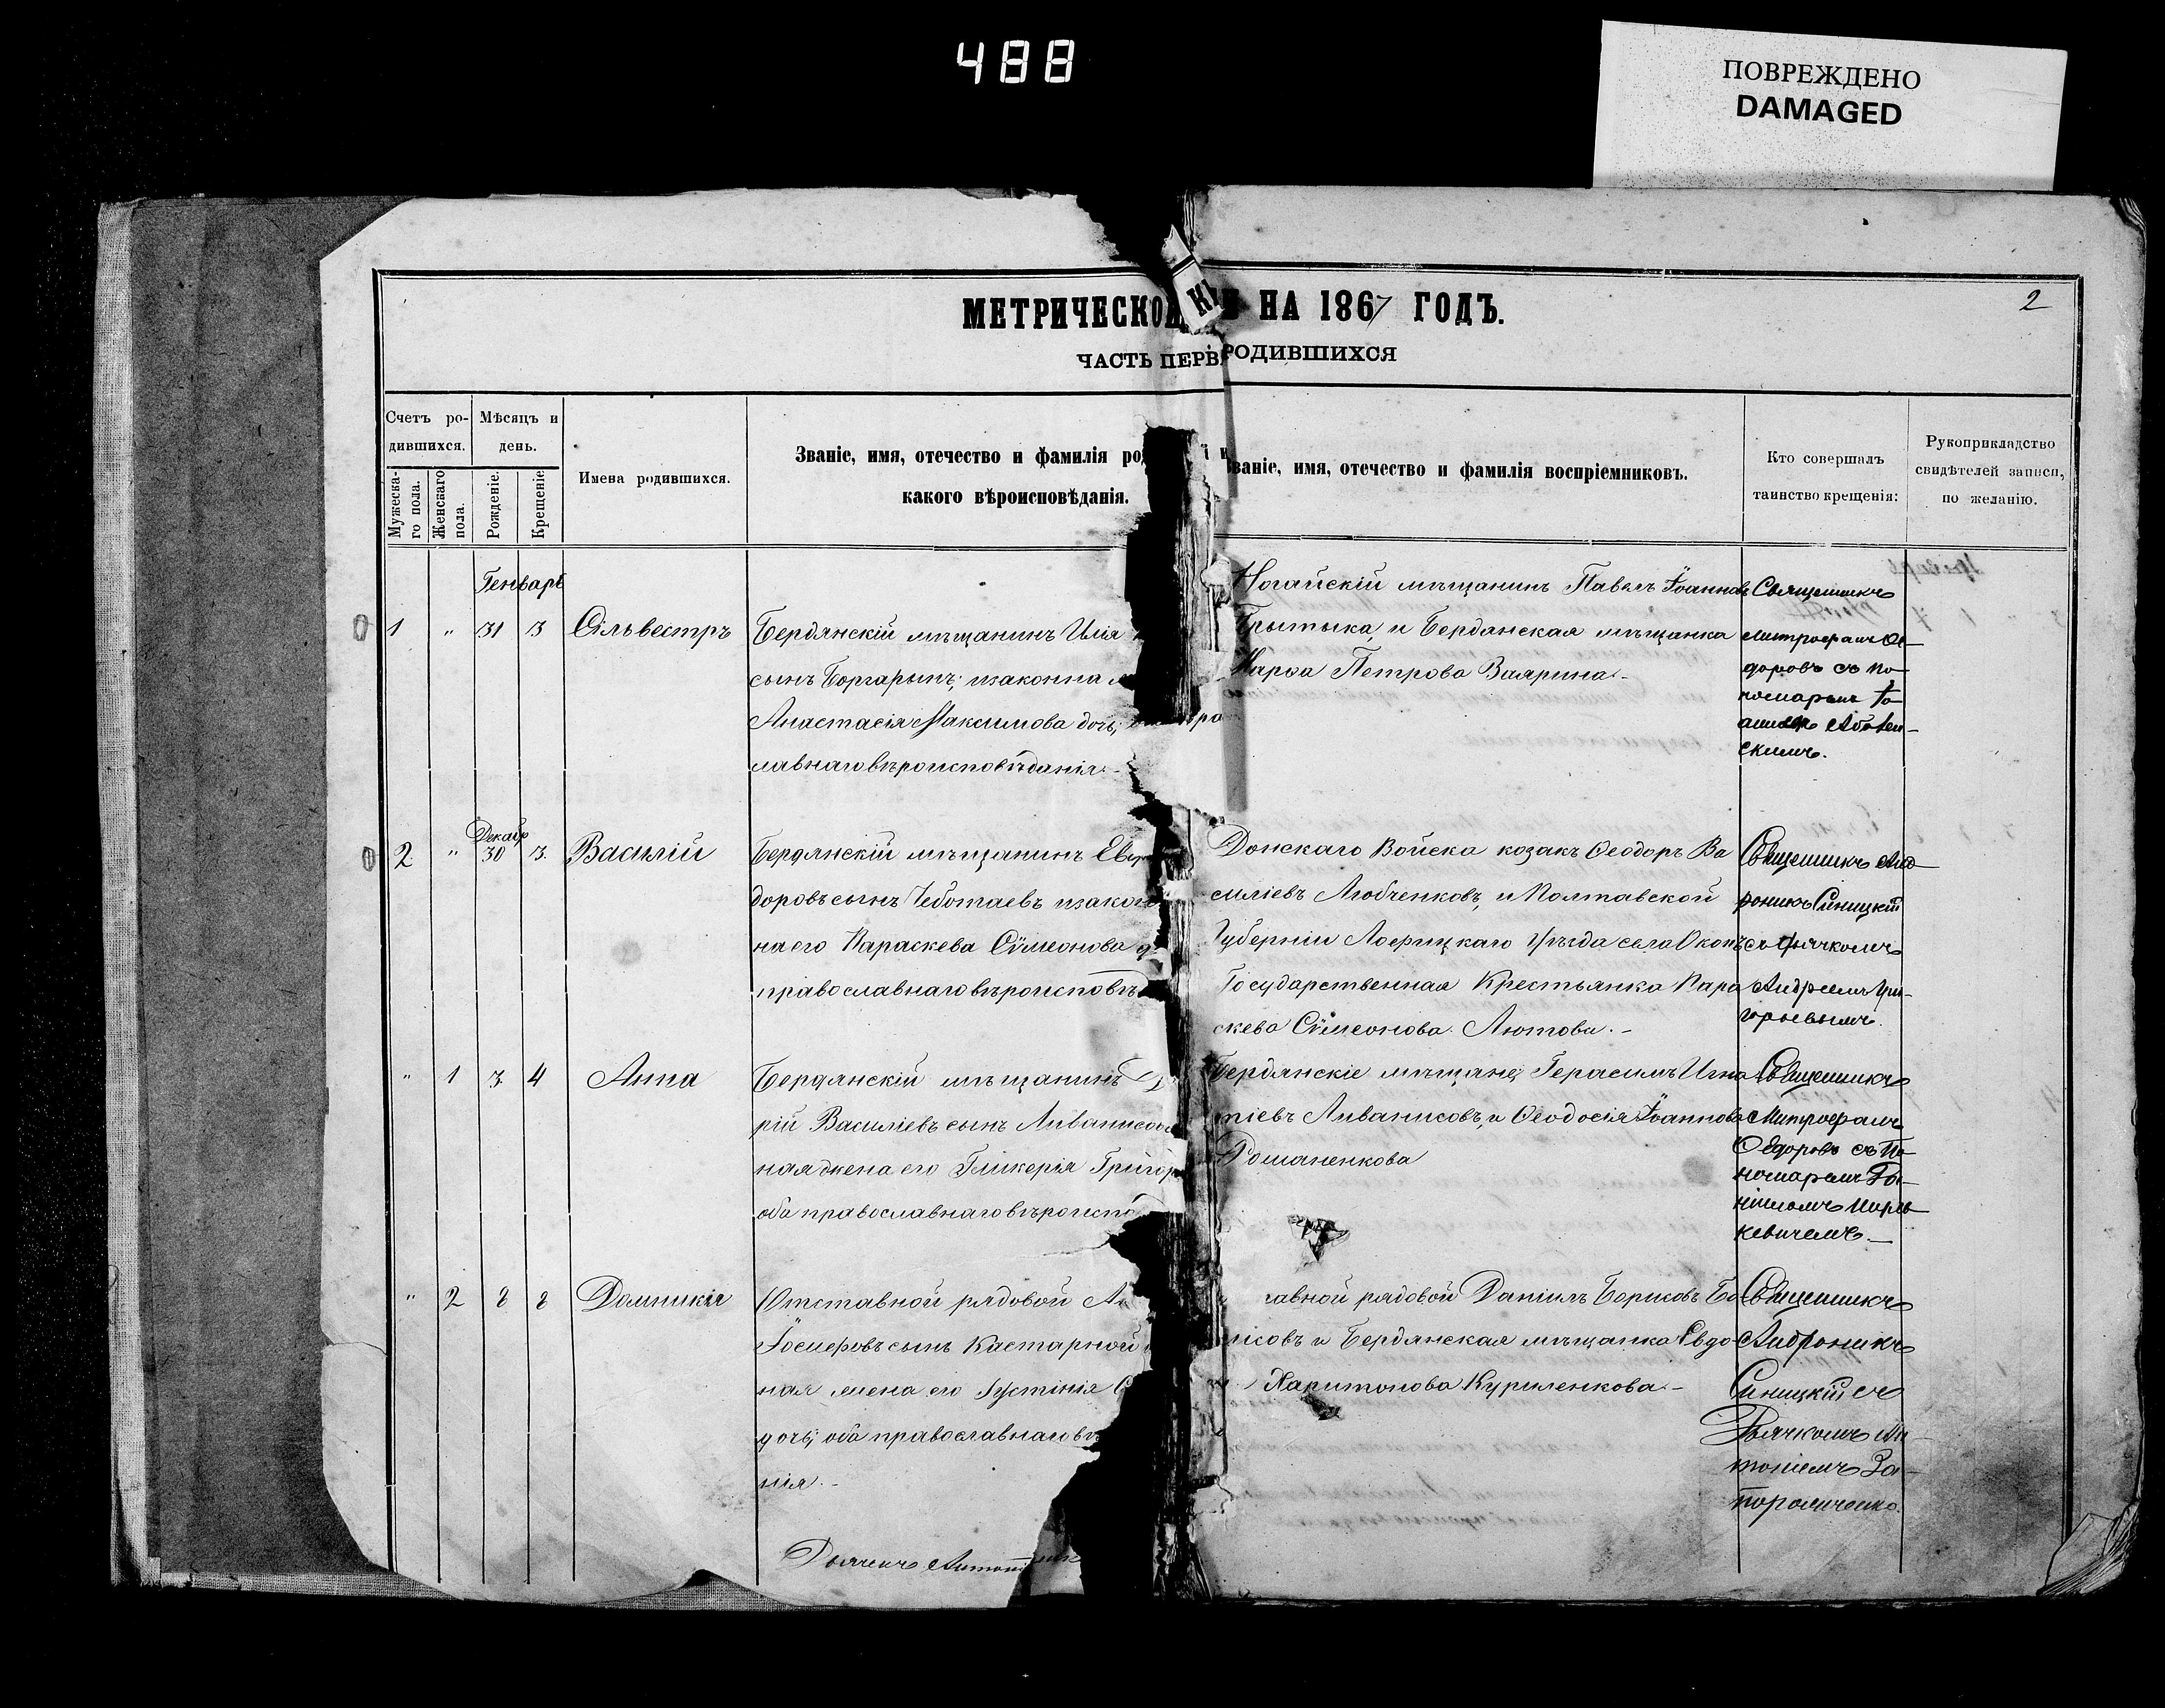 488
ПОВРЕЖДЕНО
DAMAGED
2
МЕТРИЧЕСКОЙ НА 1867 ГОДЪ.
ЧАСТЬ ПЕРВА РОДИВШИХСЯ
Счетъ родившихся.
Мужескаго пола.
Женскаго пола.
Мѣсяцъ и день.
Рожденіе.
Крещеніе
Имена родившихся.
Званіе, имя, отечество и фамилія род
какого вѣроисповѣданія.
званіе, имя, отечество и фамилія воспріемниковъ.
Кто совершалъ
таинство крещенія:
Рукоприкладство
свидѣтелей записи,
по желанію.
Генварь
1 " 31 3 Сильвестръ
Бердянскій мѣщанинъ Илія
сынъ Боргарынъ; изаконна
Анастасія Максимова дочь;
лавнаго вѣроисповѣданія.-
Ногайскій мѣщанинъ Павелъ Іоанновъ
Грытыка, и Бердянская мѣщанка
Марѳа Петрова Ваярина.-
Священникъ
Митрофанъ Ѳе-
доровъ съ по-
номаремъ Іо-
скимъ.
Декабр
2 " 30 3. Василій
Бердянскій мѣщанинъ
доровъ сынъ Чеботаевъ изакон
на его Параскева Сѵмеонова
православнаго вѣроисповѣ
Донскаго Войска козакъ Ѳеодоръ Ва
силіевъ Любченковъ, и Полтавской
Губерніи уѣзда села
Государственная Крестьянка Пара
скева Сѵмеонова Лютова.-
Священникъ Анд-
роникъ Синицкій
съ дьячкомъ
Андреемъ Гри-
горьевымъ.
" 1 3 4 Анна
Бердянскій мѣщанинъ
рій Василіевъ сынъ Ливанисовъ
ная жена его Гликерія Григор
оба православнаго вѣроиспо
Бердянскіе мѣщане; Герасимъ Игна
тіевъ Ливанисовъ, и Ѳеодосія Іоаннова
Романенкова
Священникъ
Митрофанъ
Ѳедоровъ съ По-
номаремъ
кевичемъ.-
" 2 8 8 Домникія
Отставной рядовой
Іосифовъ сынъ Кастарной
ная жена его Іустінія
дочь; оба православнаго вѣ
нія.-
тавной рядовой Даніилъ Борисовъ Бо
рисовъ и Бердянская мѣщанка Евдо
Харитонова Куриленкова.-
Священникъ
Андроникъ
Синицкій съ
Дьячкомъ Ан-
тоніемъ За-
Дьячекъ Антоній